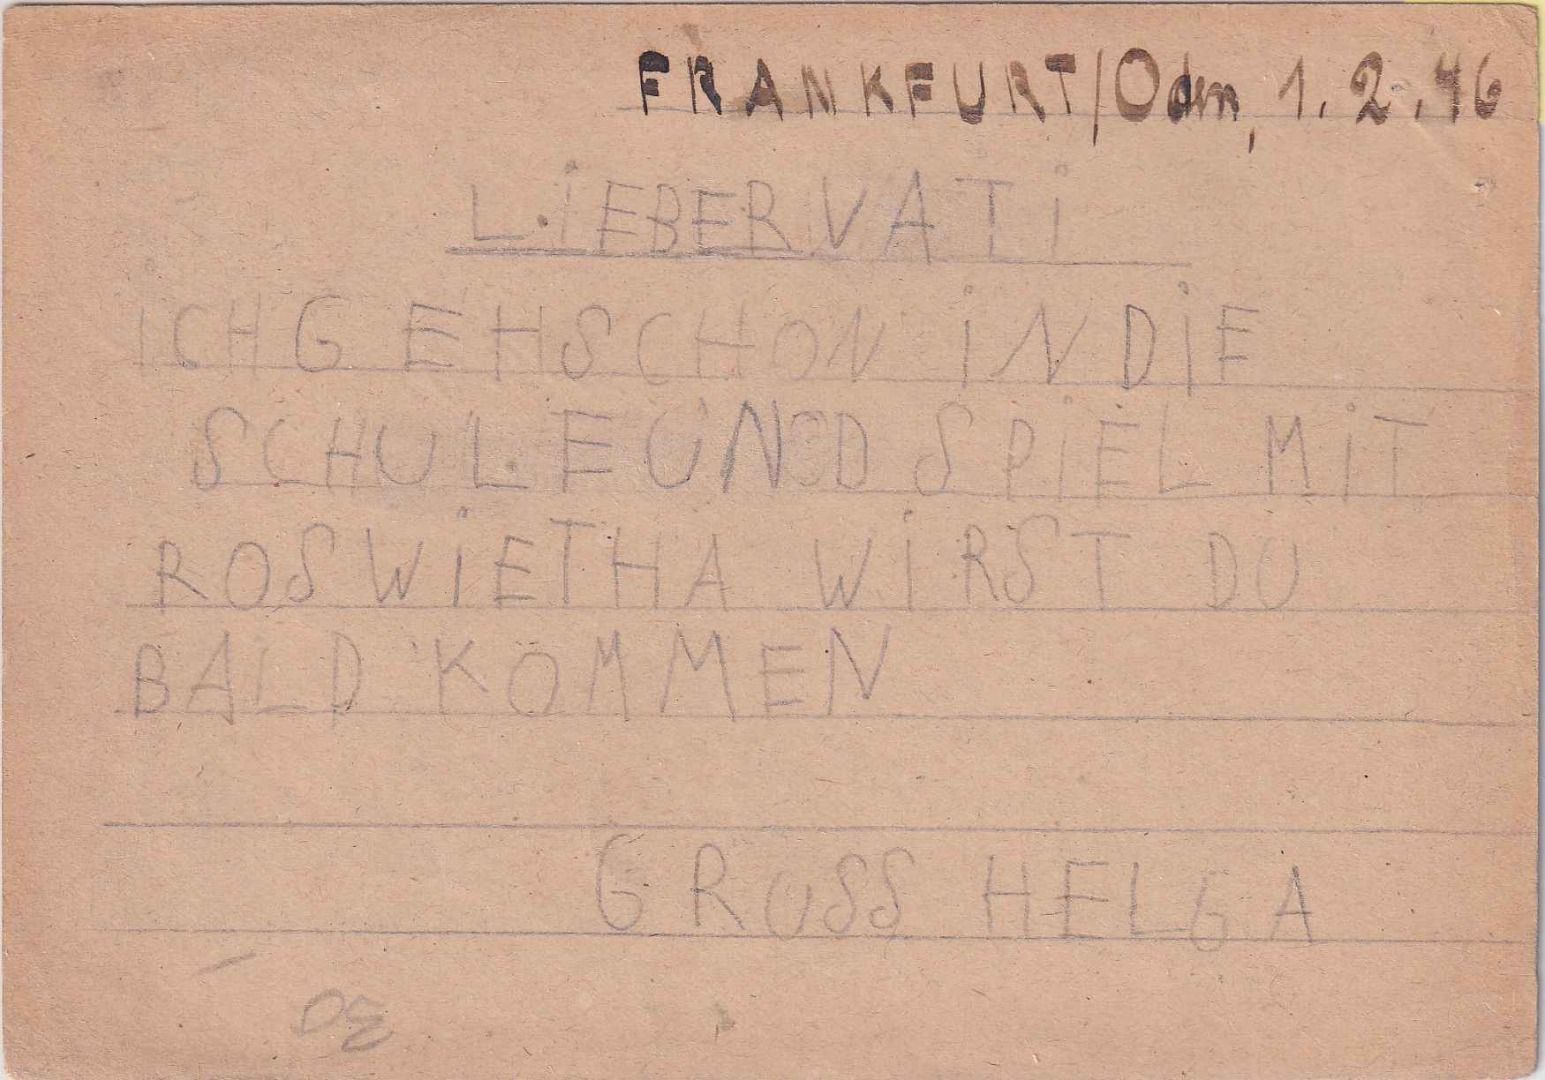 FRANKFURT/Oder, 1.2.46
LiEBER VATi
iCH GEH SCHON iN DiE
SCHULE UND SPiEL MiT
ROSWiETHA WiRST DU
BALD KOMMEN
GRUSS HELGA